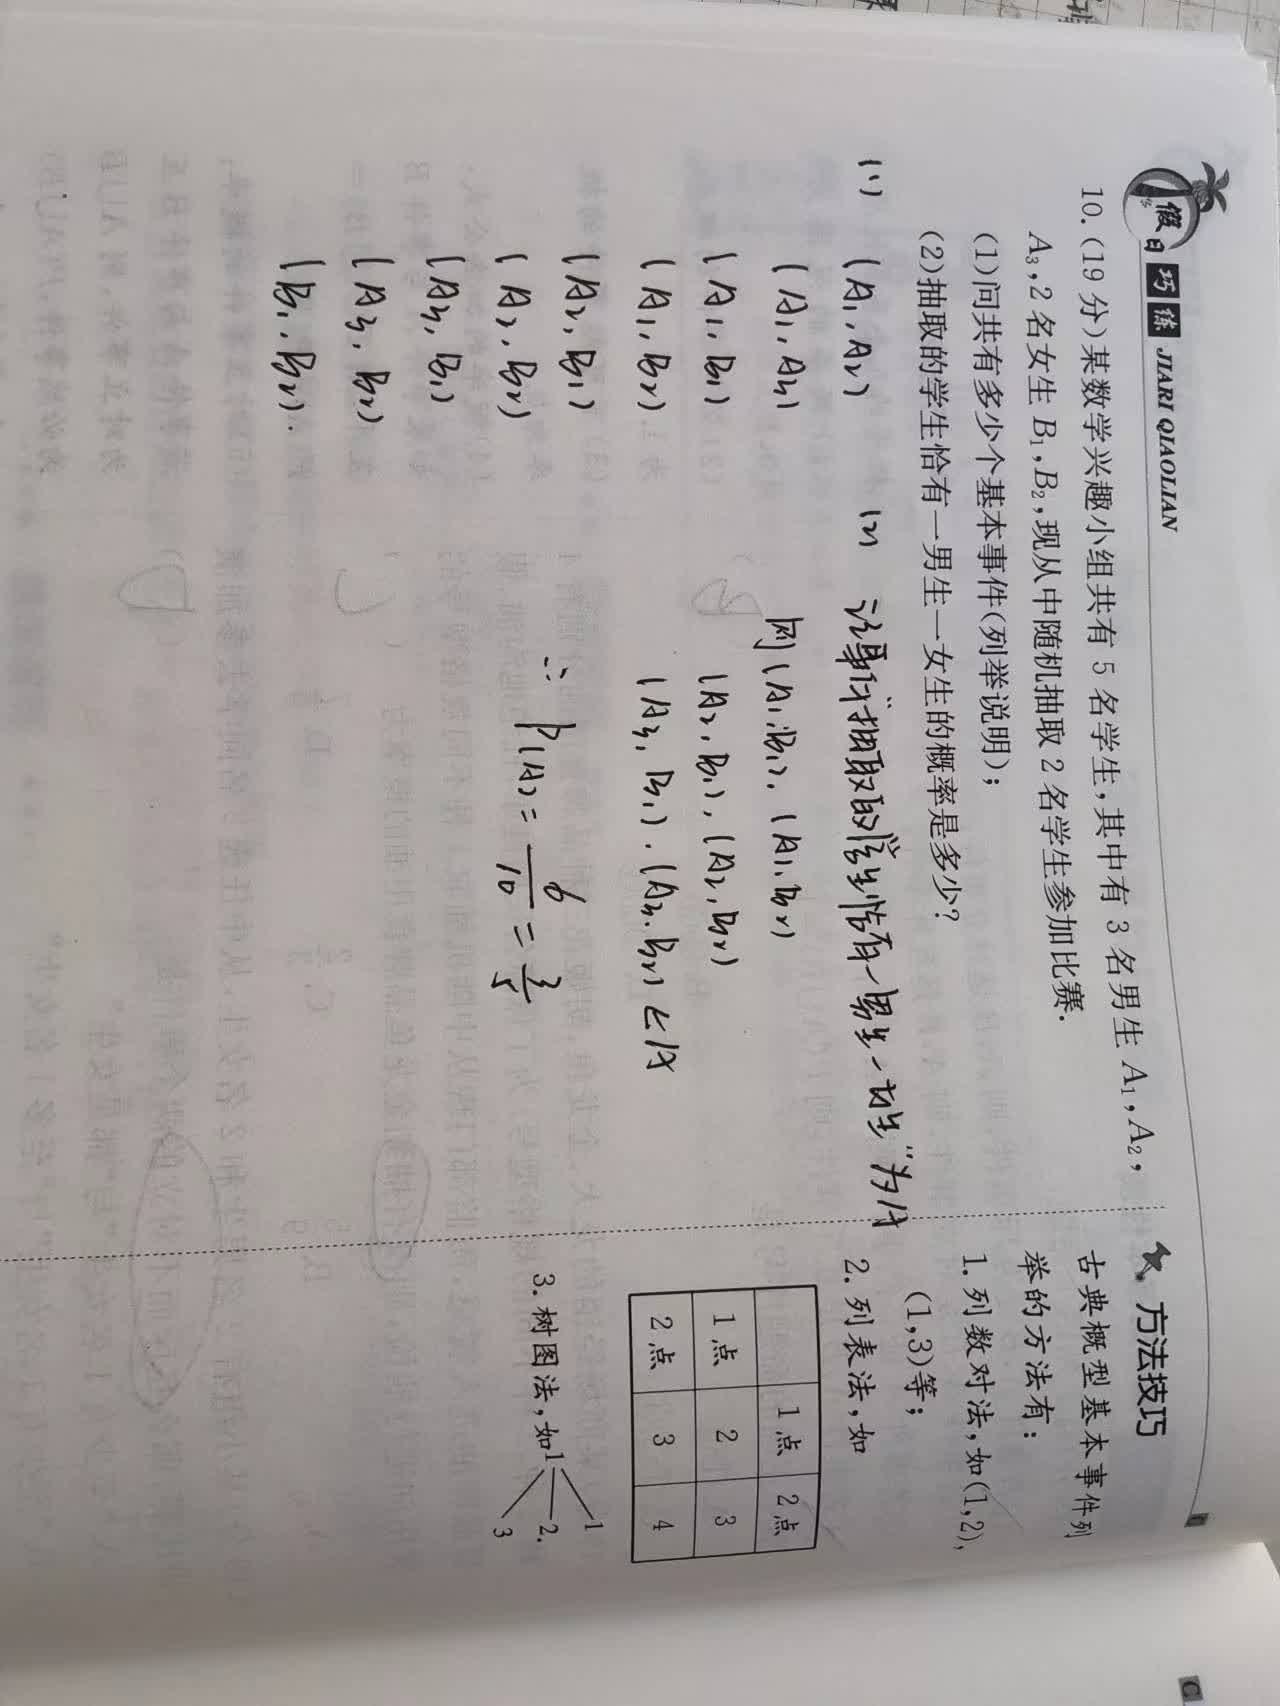 假日巧练 JIARI QIAOLIAN
10.(19 分)某数学兴趣小组共有 5 名学生,其中有 3 名男生 A₁,A₂,
A₃,2 名女生 B₁,B₂,现从中随机抽取 2 名学生参加比赛.
(1)问共有多少个基本事件(列举说明);
(2)抽取的学生恰有一男生一女生的概率是多少?
(1)
(A₁,A₂)
(A₁,A₃)
(A₁,B₁)
(A₁,B₂)
(A₂,B₁)
(A₂,B₂)
(A₃,B₁)
(A₃,B₂)
(B₁,B₂).
(2) 设事件“抽取的学生恰有一男生一女生”为A
则(A₁,B₁),(A₁,B₂)
(A₂,B₁),(A₂,B₂)
(A₃,B₁),(A₃,B₂)
∴ P(A)=6/10=3/5
方法技巧
古典概型基本事件列
举的方法有:
1.列数对法,如(1,2),
(1,3)等;
2.列表法,如
1点 2点
1点 2 3
2点 3 4
3.树图法,如1
1
2.
3
C